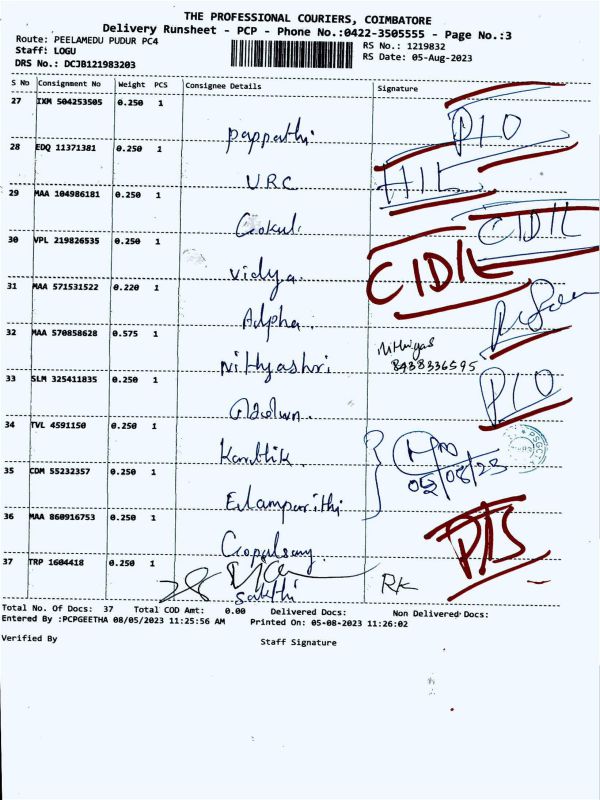 THE PROFESSIONAL COURIERS, COIMBATORE
Delivery Runsheet - PCP - Phone No.:0422-3505555 - Page No.:3
Route: PEELAMEDU PUDUR PC4
RS No.: 1219832
Staff: LOGU
RS Date: 05-Aug-2023
DRS No.: DCJB121983203
S No Consignment No Weight PCS Consignee Details Signature
27 IXM 504253505 0.250 1
pappathi PIO
28 EDQ 11371381 0.250 1
URC HIL
29 MAA 104986181 0.250 1
Gokul. CIDIL
30 VPL 219826535 0.250 1
Vidya. CIDIL
31 MAA 571531522 0.220 1
Alpha.
32 MAA 570858628 0.575 1
Nithyashri
8438336595
33 SLM 325411835 0.250 1
PIO
34 TVL 4591150 0.250 1
Karthik
35 CDM 55232357 0.250 1
Elamparithi
36 MAA 860916753 0.250 1
Gopalsamy
37 TRP 1604418 0.250 1
Sakthi RK
Total No. Of Docs: 37 Total COD Amt: 0.00 Delivered Docs: Non Delivered Docs:
Entered By :PCPGEETHA 08/05/2023 11:25:56 AM Printed On: 05-08-2023 11:26:02
Verified By Staff Signature